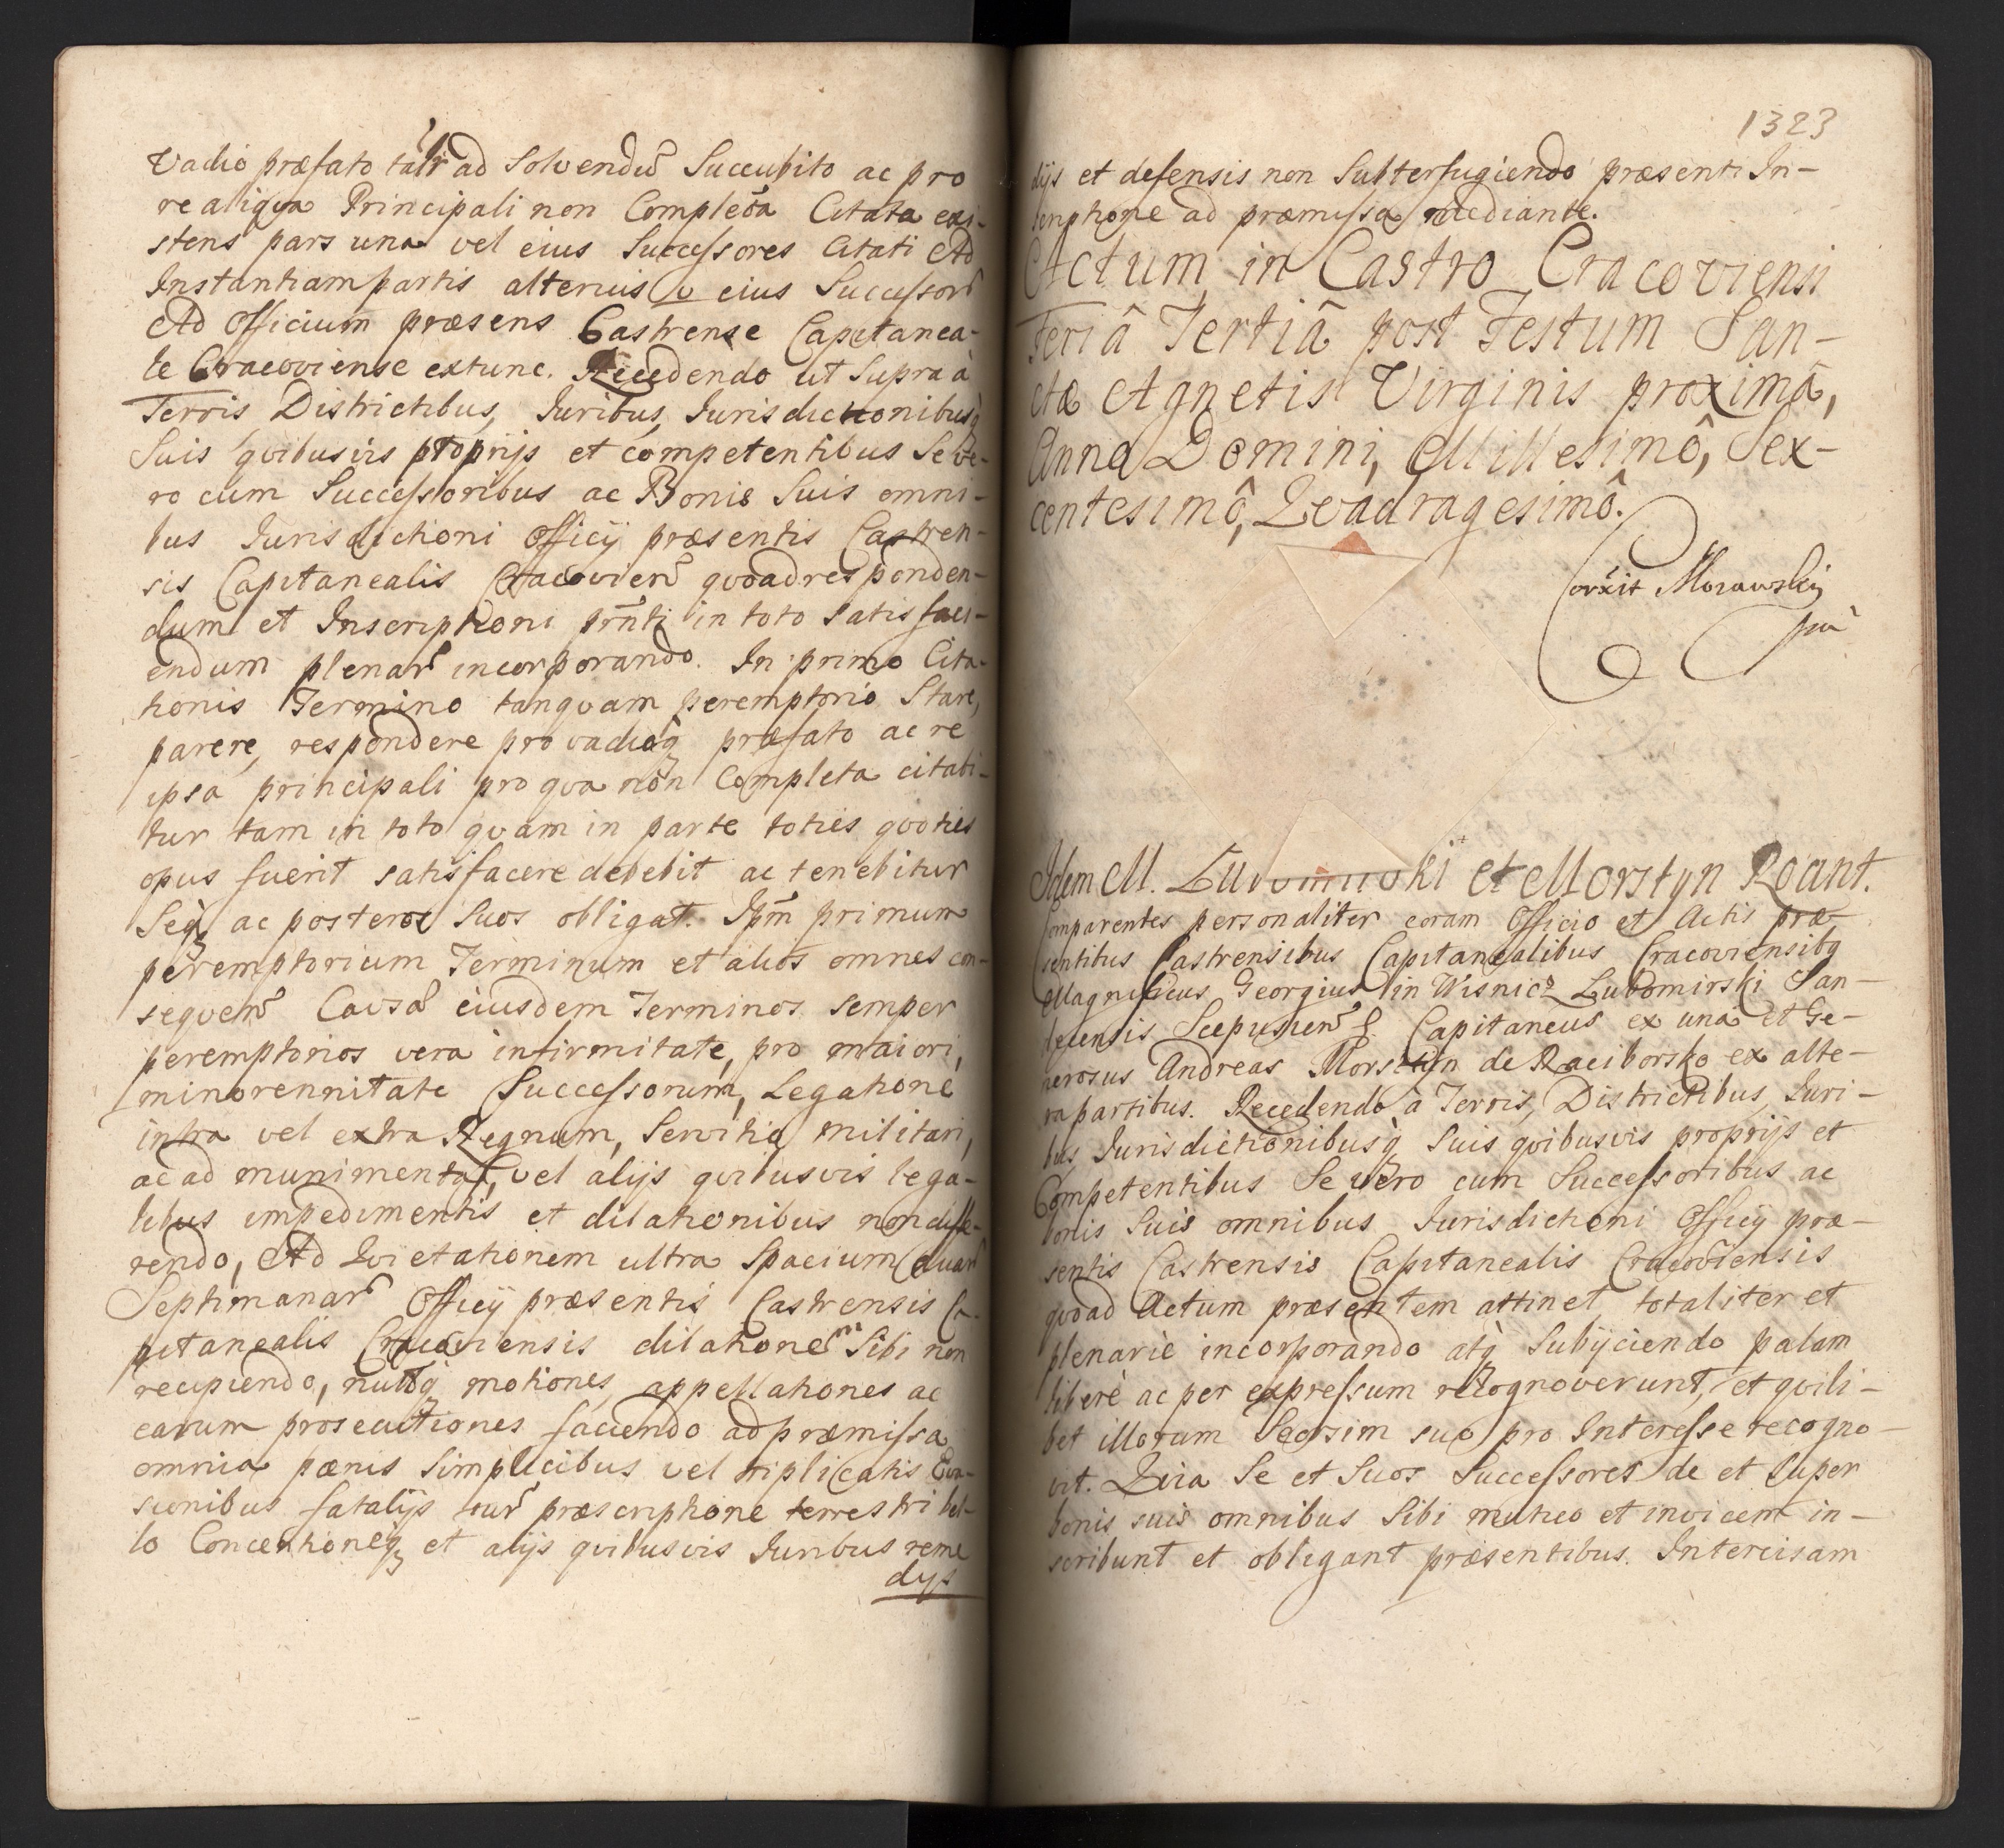 Vadio præfato talr ad Solvendũ Succubito ac pro
re aliqua Principali non Completa Citata exi-
stens pars una vel eius Successores Citati Ad
Instantiam partis alterius v eius Successorũ
Ad Officium præsens Castrense Capitanea-
le Cracoviense extunc. Recedendo ut Supra à
Terris Districtibus, Iuribus, Iurisdictionibusq̀
Suis quibusvis proprijs et competentibus Se ve-
ro cum Successoribus ac Bonis Suis omni-
bus Iurisdictioni Officij præsentis Castren-
sis Capitanealis Cracovien̄ quoad responden-
dum et Inscriptioni prñti in toto satisfaci-
endum plenar̃ incorporando. In primo Cita-
tionis Termino tanquam peremptorio Stare,
parere, respondere pro vadioq̀ præfato ac re
ipsa principali pro qua non Completa citabi-
tur tam in toto quam in parte toties quoties
opus fuerit satisfacere debebit ac tenebitur
Seq̀ ac posteros Suos obligat. Ipm̃ primum
peremptorium Terminum et alios omnes con-
sequen̄ Causæ eiusdem Terminos semper
peremptorios vera infirmitate, pro maiori,
minorennitate Successorum, Legatione
intra vel extra Regnum, Servitio militari,
ac ad munimenta, vel alijs quibusvis lega-
libus impedimentis et dilationibus non diffe-
rendo, Ad Quietationem ultra Spacium duar̃
Septimanar̃ Officij præsentis Castrensis Ca-
pitanealis Cracoviensis dilationem Sibi non
recipiendo, nullasq̀ motiones, appellationes ac
earum prosecutiones faciendo ad præmissa
omnia pœnis Simplicibus vel triplicatis Eva-
sionibus fatalijs iur̃ præscriptione terrestri bel-
lo Concertioneq̀ et alijs quibusvis Iuribus reme
dijs
1323
dijs et defensis non Subterfugiendo præsenti In-
scriptione ad præmissa mediante.
Actum in Castro Cracoviensi
Feriâ Tertiâ post Festum San-
ctæ Agnetis Virginis proximâ,
Anno Domini, Millesimô, Sex-
centesimô, Quadragesimô.
Corrxit Morawsky
mp
Idem M. Lubomirski et Morstyn Roant.
Comparentes personaliter coram Officio et Actis præ-
sentibus Castrensibus Capitanealibus Cracoviensibq
Magnificus Georgius in Wisnicz Lubomirski San-
decensis Scepusien̄ & Capitaneus ex una et Ge-
nerosus Andreas Morsztyn de Raciborsko ex alte-
ra partibus. Recedendo à Terris, Districtibus, Iuri-
bus Iurisdictionibusq̀ Suis quibusvis proprijs et
Competentibus Se vero cum Successoribus ac
bonis Suis omnibus Iurisdictioni Officij præ-
sentis Castrensis Capitanealis Cracoviensis
quoad Actum præsentem attinet, totaliter et
plenariè incorporando atq̀ Subijciendo palam
liberè ac per expressum recognoverunt, et quili-
bet illorum Seorsim suo pro Interesse recogno-
vit. Quia Se et Suos Successores de et super
bonis suis omnibus Sibi mutuo et invicem in-
scribunt et obligant præsentibus. Intercisam